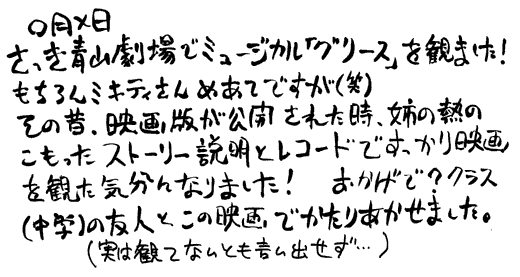 ○月×日
さっき青山劇場でミュージカル「グリース」を観ました!
もちろんミキティさんめあてですが(笑)
その昔、映画版が公開された時、姉の熱の
こもったストーリー説明とレコードですっかり映画
を観た気分になりました! おかげで?クラス
(中学)の友人とこの映画でかたりあかせました。
(実は観てないとも言い出せず…)